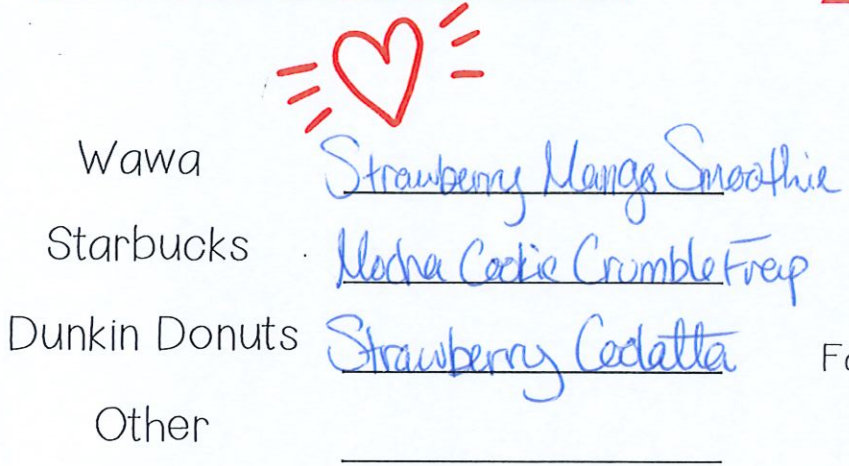 Wawa Strawberry Mango Smoothie
Starbucks Mocha Cookie Crumble Frap
Dunkin Donuts Strawberry Coolatta
Other